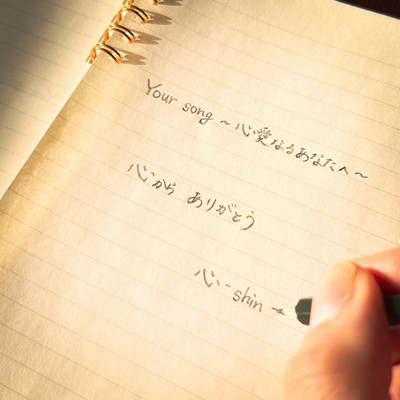 Your song ~心愛なるあなたへ~
心から ありがとう
心-shin-